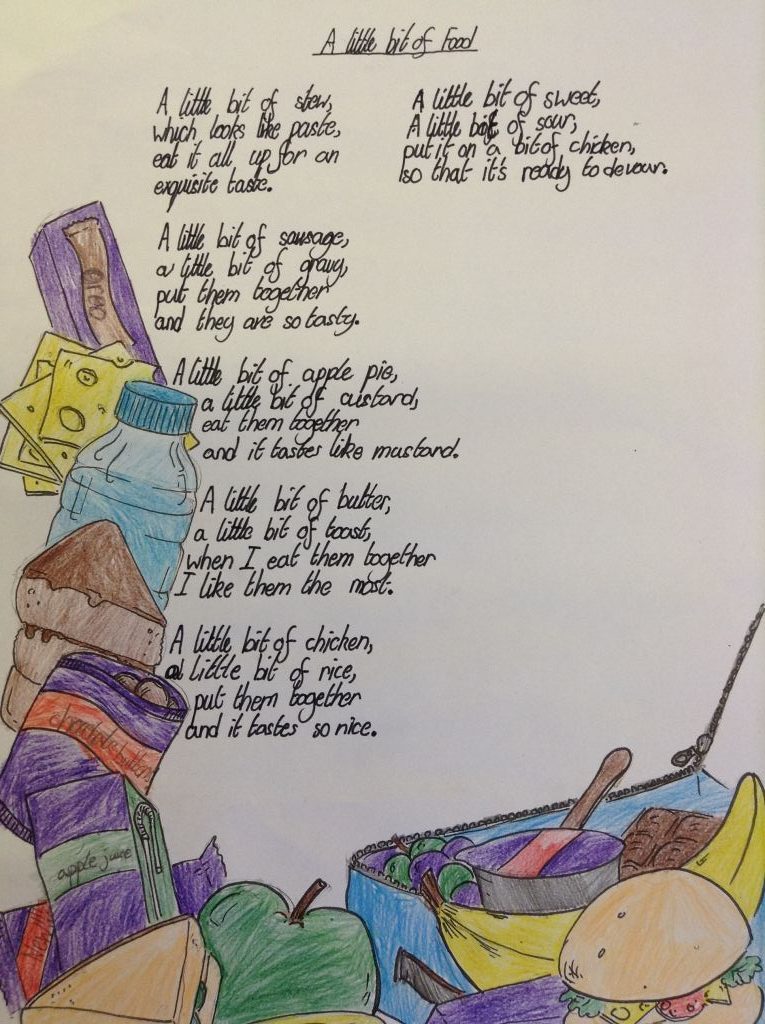 A little bit of Food
A little bit of stew,
which looks like paste,
eat it all up for an
exquisite taste.
A little bit of sausage,
a little bit of gravy,
put them together
and they are so tasty.
A little bit of apple pie,
a little bit of custard,
eat them together
and it tastes like mustard.
A little bit of butter,
a little bit of toast,
when I eat them together
I like them the most.
A little bit of chicken,
a little bit of rice,
put them together
and it tastes so nice.
A little bit of sweet,
A little bit of sour,
put it on a bit of chicken,
so that it's ready to devour.
chocolate buttons
apple juice